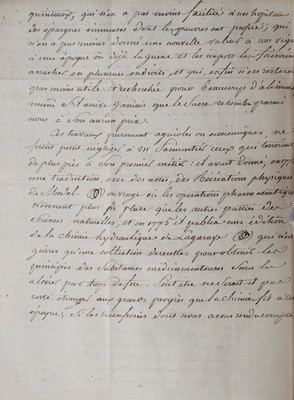 quintaux, qui n'a pas moins facilité à nos hopitaux
des épargnes immenses dont les pauvres ont profité; qui
n'en a pas moins donné une nouvelle valeur à nos vignes
à une époque où déjà la guerre et les impots les faisoient
arracher en plusieurs endroits, et qui, enfin n'en restera
pas moins utile et recherchée pour beaucoup d'alimens
même s'il arrive jamais que le sucre retombe parmi
nous à son ancien prix.
Ces travaux purement agricoles ou économiques, ne
firent point negliger à M. Parmentier ceux qui tenoient
de plus près à son premier métier: il avait donné, en
une traduction, avec des notes, des Récréations physiques
de Model ouvrage où les opérations pharmaceutiques
tiennent plus de place que les autres parties des
sciences naturelles et en 1775 il publia une édition
de la chimie hydraulique de Lagaraye qui n'est
guères qu'une collection de recettes pour obtenir les
principes des substances médicamenteuses sans les
altérer par trop de feu. Peut être ne serait-il pas
resté étranger aux grands progrès que la chimie fit à cette
époque, si les